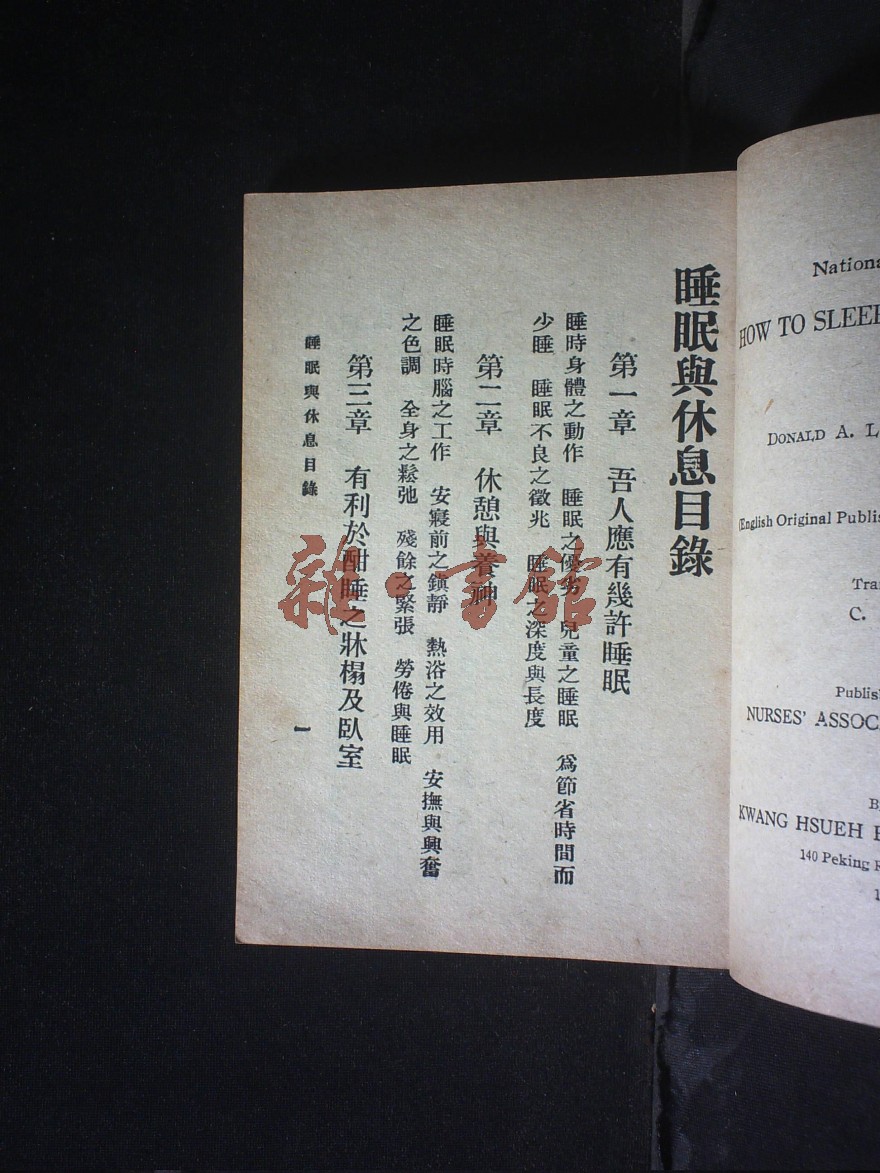 睡眠與休息目錄
第一章　吾人應有幾許睡眠
睡時身體之動作　睡眠之優劣　兒童之睡眠　爲節省時間而
少睡　睡眠不良之徵兆　睡眠之深度與長度
第二章　休憩與養神
睡眠時腦之工作　安寢前之鎮靜　熱浴之效用　安撫與興奮
之色調　全身之鬆弛　殘餘之緊張　勞倦與睡眠
第三章　有利於酣睡之牀榻及臥室
睡眠與休息目錄
一
雜·書館
Nationa
HOW TO SLEEP
DONALD A. L
(English Original Publis
Tra
C.
Publis
NURSES' ASSOC
B
KWANG HSUEH
140 Peking R
1